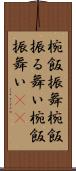 椀飯振舞椀飯
振る舞い椀飯
振舞い